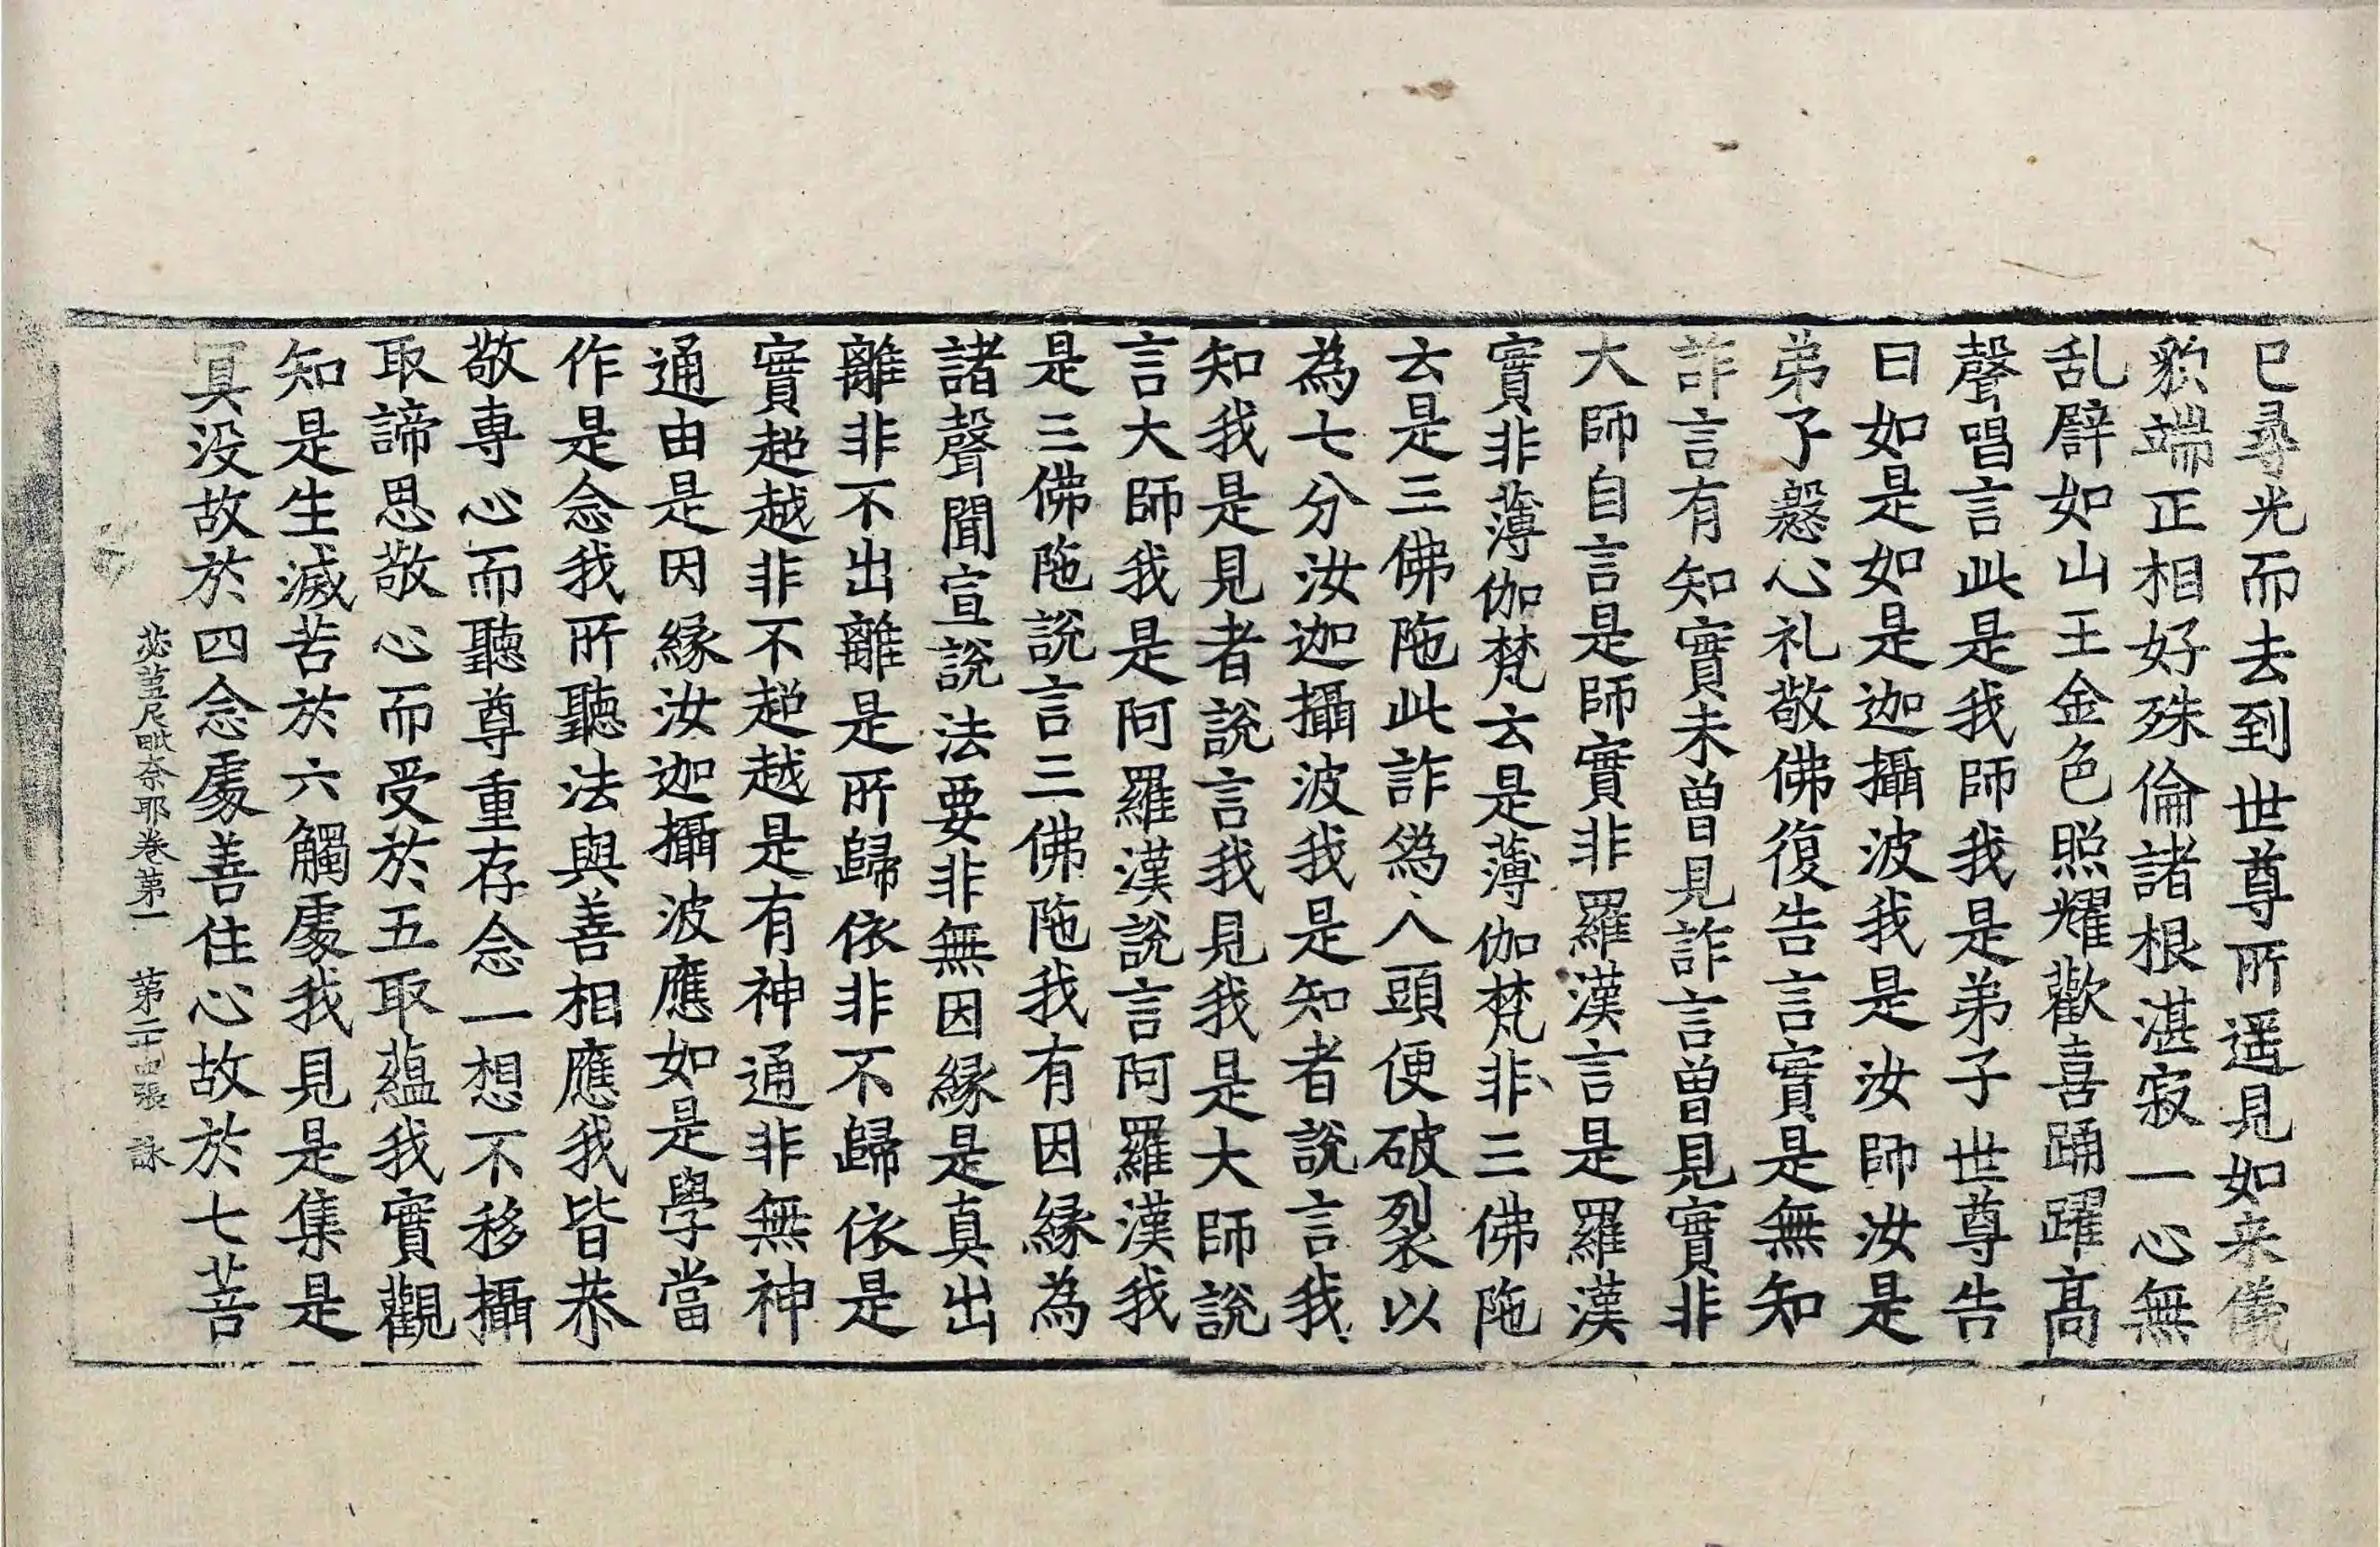 已尋光而去到世尊所遥見如来儀
皃端正相好殊倫諸根湛寂一心無
乱辟如山王金色照耀歡喜踊躍髙
聲唱言此是我師我是弟子世尊告
曰如是如是迦攝波我是汝師汝是
弟子慇心礼敬佛復告言實是無知
詐言有知實未曾見詐言曾見實非
大師自言是師實非羅漢言是羅漢
實非薄伽梵云是薄伽梵非三佛陁
云是三佛陁此詐為人頭便破裂以
為七分汝迦攝波我是知者說言我
知我是見者說言我見我是大師說
言大師我是阿羅漢說言阿羅漢我
是三佛陁說言三佛陁我有因緣為
諸聲聞宣說法要非無因緣是真出
離非不出離是所歸依非不歸依是
實超越非不超越是有神通非無神
通由是因緣汝迦攝波應如是學當
作是念我所聽法與善相應我皆恭
敬専心而聽尊重存念一想不移攝
取諦思敬心而受於五取蘊我實觀
知是生滅苦於六觸處我見是集是
真没故於四念處善住心故於七菩
苾蒭尼毗奈耶卷第一 第二十四張 詠